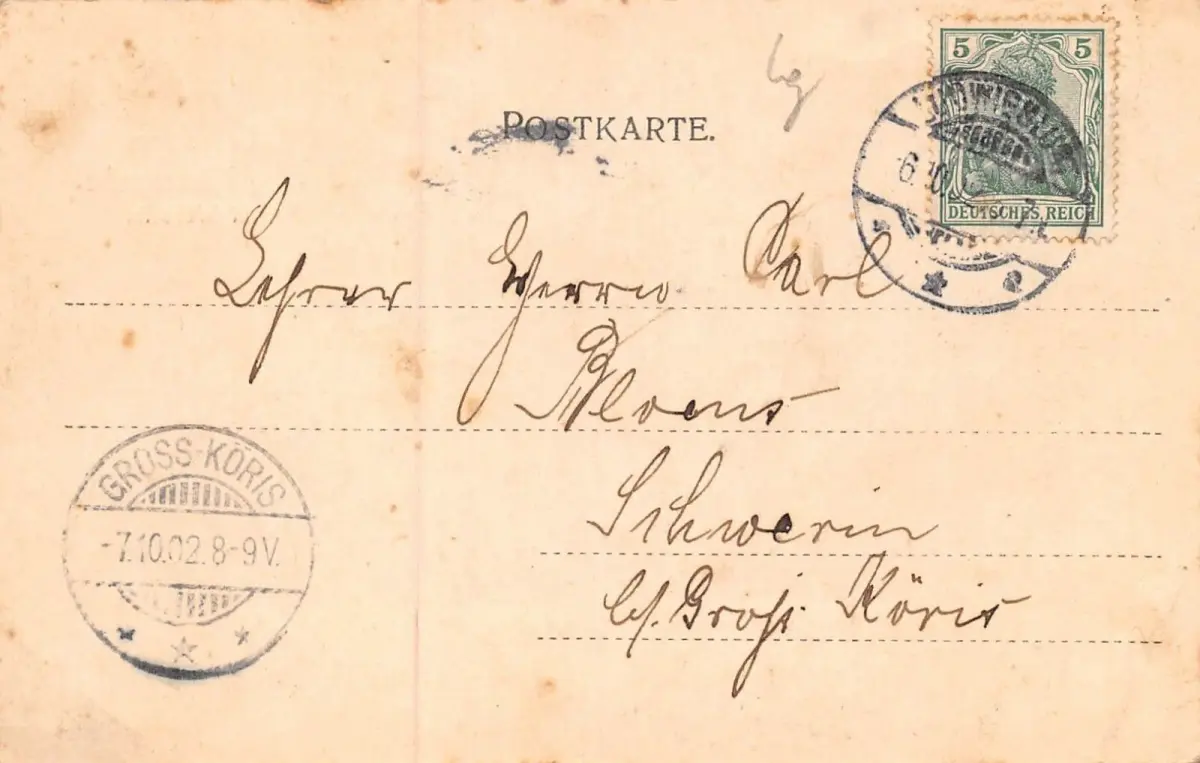 5 5
POSTKARTE.
DEUTSCHES REICH
Lehrer Herrn Carl
Schwerin
b/ Groß Köris
GROSS-KÖRIS
-7.10.02.8-9V.